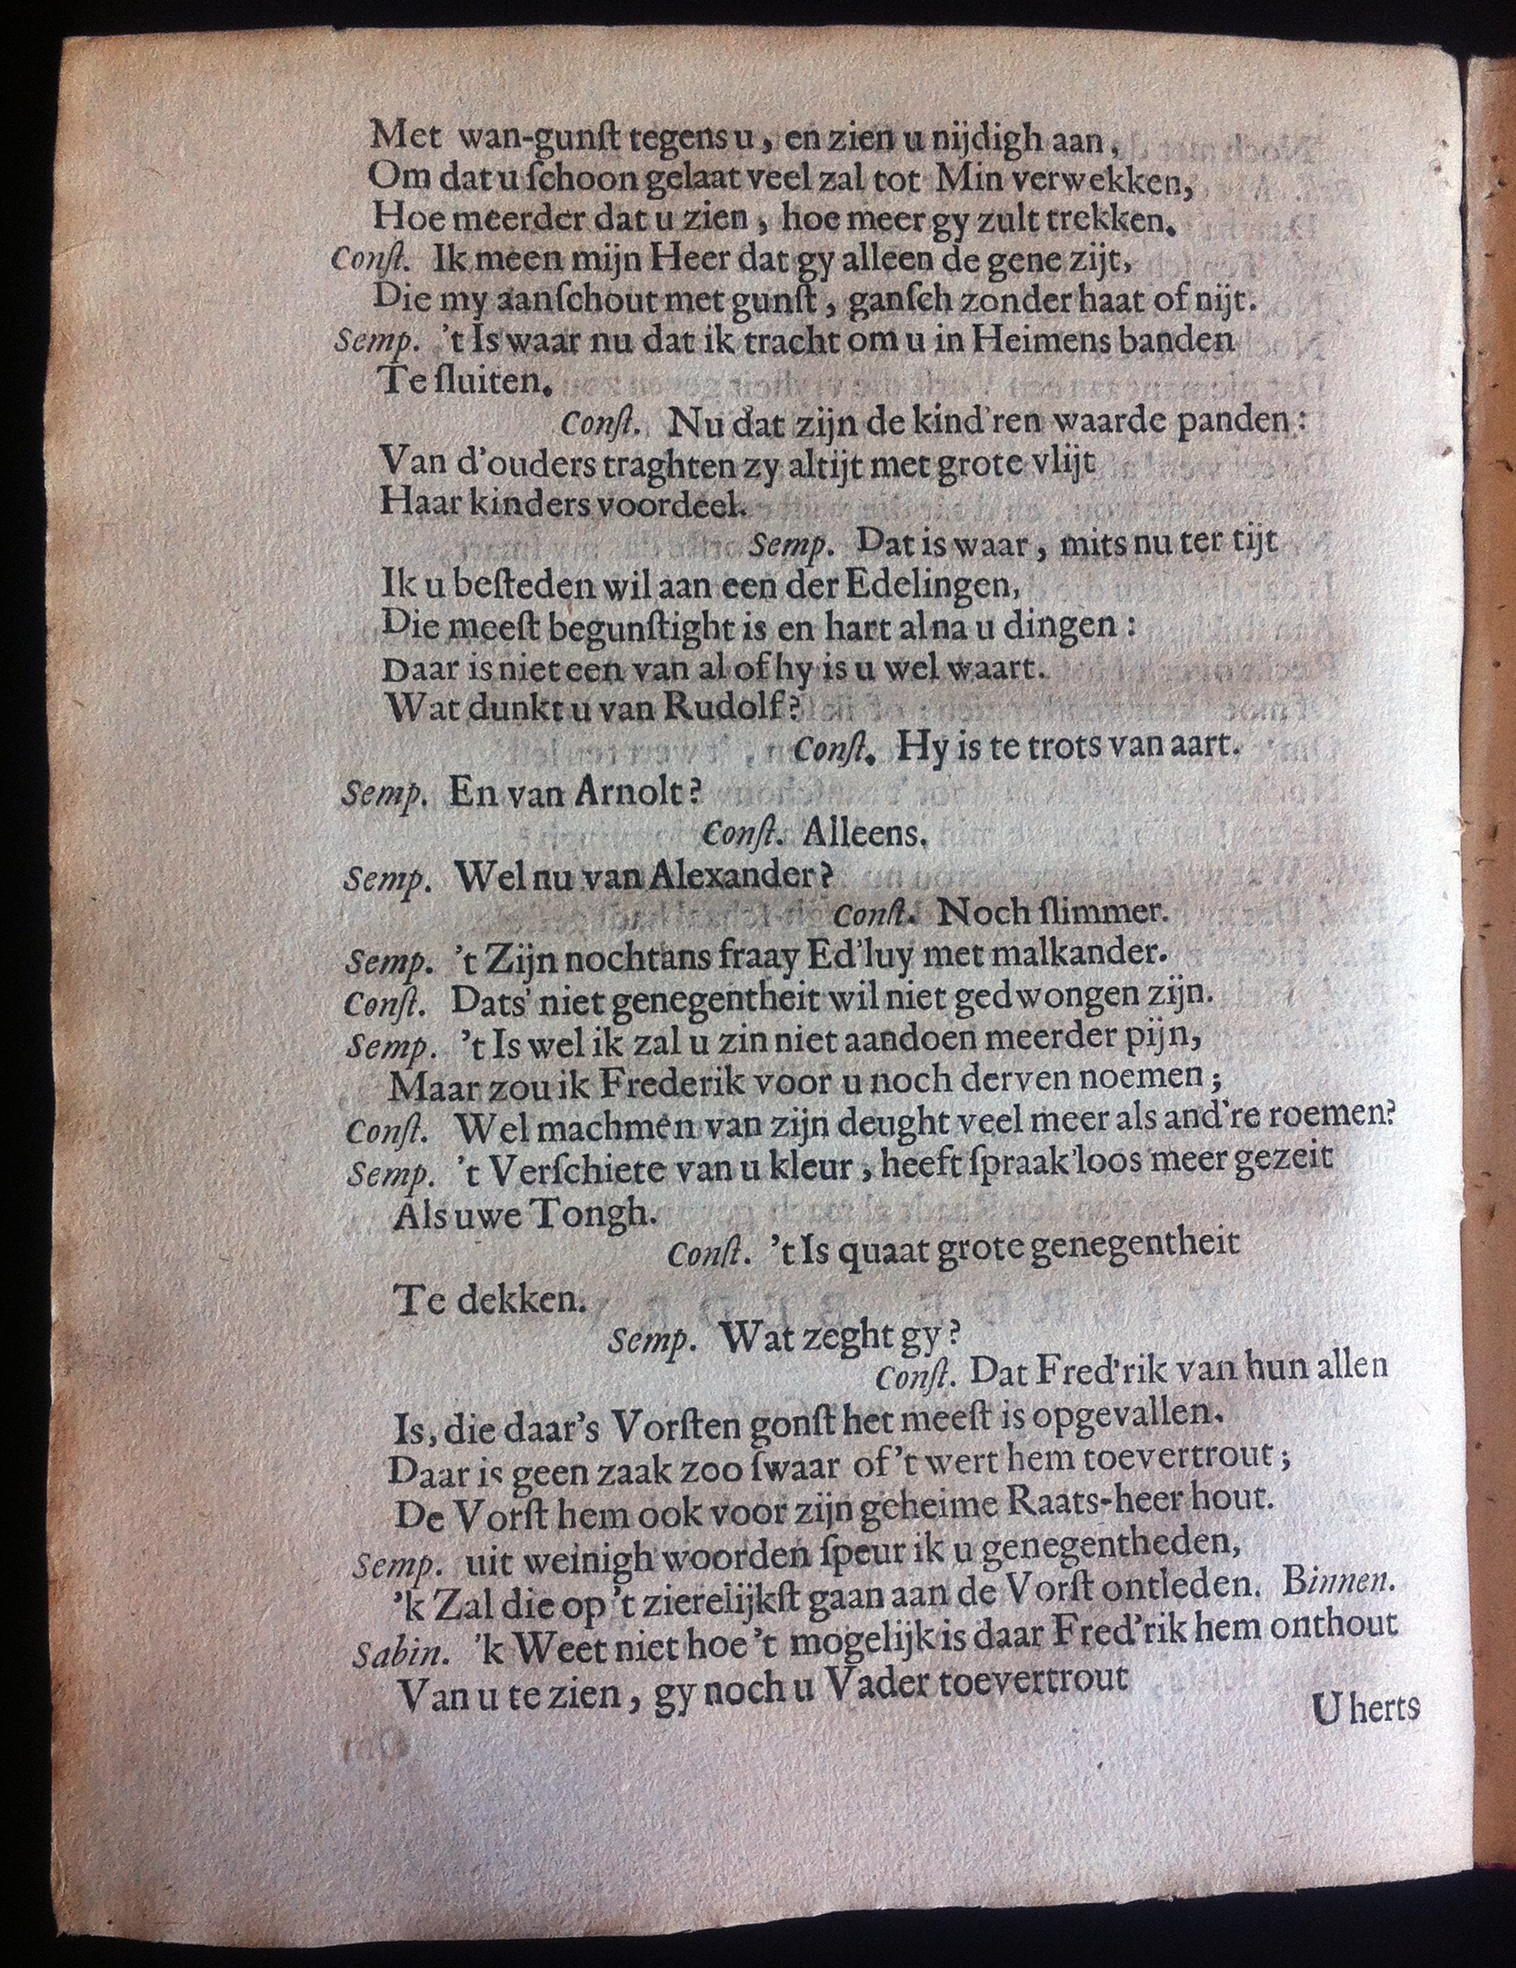 Met wan-gunſt tegens u, en zien u nijdigh aan,
Om dat u ſchoon gelaat veel zal tot Min verwekken,
Hoe meerder dat u zien, hoe meer gy zult trekken.
Conſt. Ik meen mijn Heer dat gy alleen de gene zijt,
Die my aanſchout met gunſt, ganſch zonder haat of nijt.
Semp. 't Is waar nu dat ik tracht om u in Heimens banden
Te ſluiten.
Conſt. Nu dat zijn de kind'ren waarde panden:
Van d'ouders traghten zy altijt met grote vlijt
Haar kinders voordeel.
Semp. Dat is waar, mits nu ter tijt
Ik u beſteden wil aan een der Edelingen,
Die meeſt begunſtight is en hart al na u dingen:
Daar is niet een van al of hy is u wel waart.
Wat dunkt u van Rudolf?
Conſt. Hy is te trots van aart.
Semp. En van Arnolt?
Conſt. Alleens.
Semp. Wel nu van Alexander?
Conſt. Noch ſlimmer.
Semp. 't Zijn nochtans fraay Ed'luy met malkander.
Conſt. Dats' niet genegentheit wil niet gedwongen zijn.
Semp. 't Is wel ik zal u zin niet aandoen meerder pijn,
Maar zou ik Frederik voor u noch derven noemen;
Conſt. Wel machmen van zijn deught veel meer als and're roemen?
Semp. 't Verſchiete van u kleur, heeft ſpraak'loos meer gezeit
Als uwe Tongh.
Conſt. 't Is quaat grote genegentheit
Te dekken.
Semp. Wat zeght gy?
Conſt. Dat Fred'rik van hun allen
Is, die daar's Vorſten gonſt het meeſt is opgevallen.
Daar is geen zaak zoo ſwaar of 't wert hem toevertrout;
De Vorſt hem ook voor zijn geheime Raats-heer hout.
Semp. uit weinigh woorden ſpeur ik u genegentheden,
'k Zal die op 't zierelijkſt gaan aan de Vorſt ontleden. Binnen.
Sabin. 'k Weet niet hoe 't mogelijk is daar Fred'rik hem onthout
Van u te zien, gy noch u Vader toevertrout
U herts